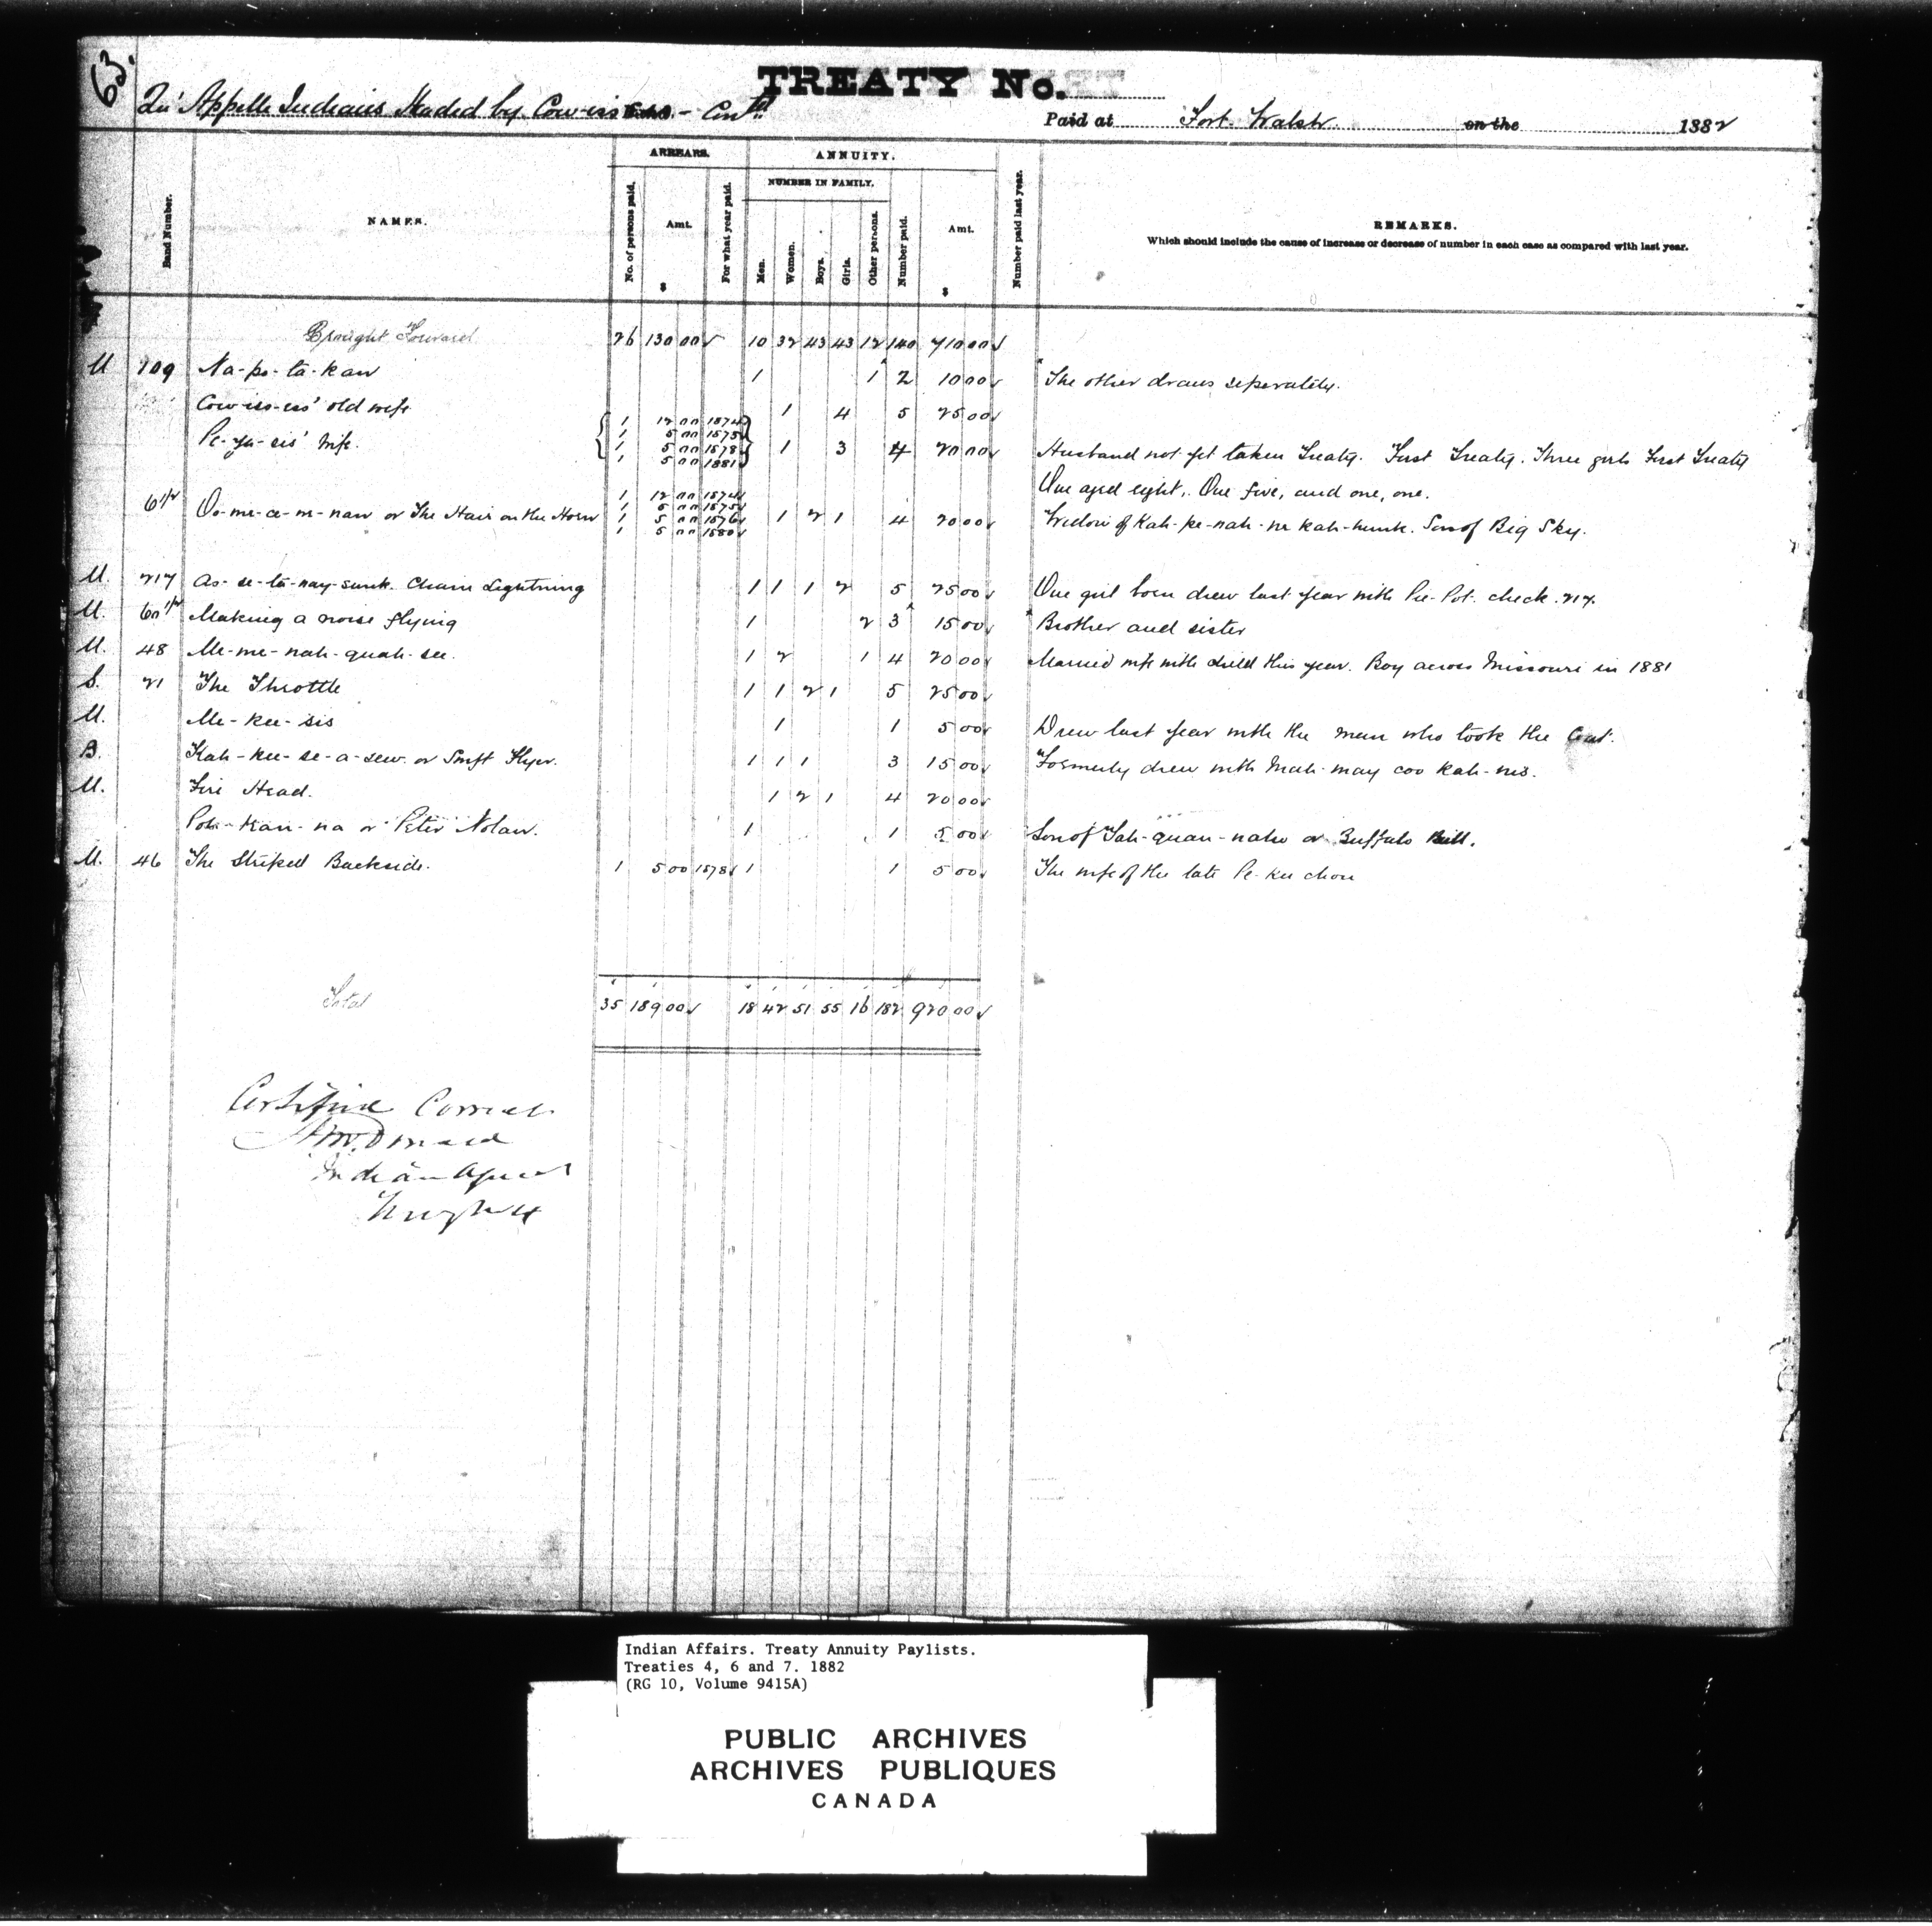 63.
TREATY No.
Qu'Appelle Indians Headed by Cow-ises - Cont'd
Paid at Fort Walsh on the 1882
ARREARS. ANNUITY.
NUMBER IN FAMILY.
Band Number. NAMES. No. of persons paid. Amt. $ For what year paid. Men. Women. Boys. Girls. Other persons. Number paid. Amt. $ Number paid last year. REMARKS.
Which should include the cause of increase or decrease of number in each case as compared with last year.
Brought Forward 26 130 00 10 32 43 43 12 140 710 00
M 209 Na-po-ta-kaw 1 1 2 10 00 The other draws seperately.
Cow-iss-ess' old wife 1 4 5 25 00
1 12 00 1874
1 5 00 1875
Pe-ya-sis' wife. 1 5 00 1878 1 3 4 20 00 Husband not yet taken Treaty. First Treaty. Three girls First Treaty
1 5 00 1881
One aged eight, One five, and one, one.
1 12 00 1874
1 5 00 1875
6 1/2 Oo-me-ce-me-naw or The Hair on the Horn 1 5 00 1876 1 2 1 4 20 00 Widow of Kah-pe-nah-ne kah-hunk. Son of Big Sky.
1 5 00 1880
M. 217 As-se-ta-nay-sunk. Chain Lightning 1 1 1 2 5 25 00 One girl born drew last year with Pie-Pot. check. 217.
M. 60 1/2 Making a noise flying 1 2 3 15 00 Brother and sister
M. 48 Me-me-nah-quah-see. 1 2 1 4 20 00 Married wife with child this year. Boy across Missouri in 1881
S. 21 The Throttle 1 1 2 1 5 25 00
M. Me-kee-sis 1 1 5 00 Drew last year with the man who took the Coat.
B. Kah-kee-se-a-sew. or Swift Flyer. 1 1 1 3 15 00 Formerly drew with Mah-may coo kah-nes.
M. Fire Head. 1 2 1 4 20 00
Pok-kan-na or "Peter" Nolan. 1 1 5 00 Son of Tah-quan-nahe or Buffalo Bull.
M. 46 The Striped Backside. 1 5 00 1878 1 1 5 00 The wife of the late Pe-kee chou
Total 35 189 00 18 42 51 55 16 182 920 00
Certified Correct
A McDonald
Indian Agent
Treaty No 4
Indian Affairs. Treaty Annuity Paylists.
Treaties 4, 6 and 7. 1882
(RG 10, Volume 9415A)
PUBLIC ARCHIVES
ARCHIVES PUBLIQUES
CANADA